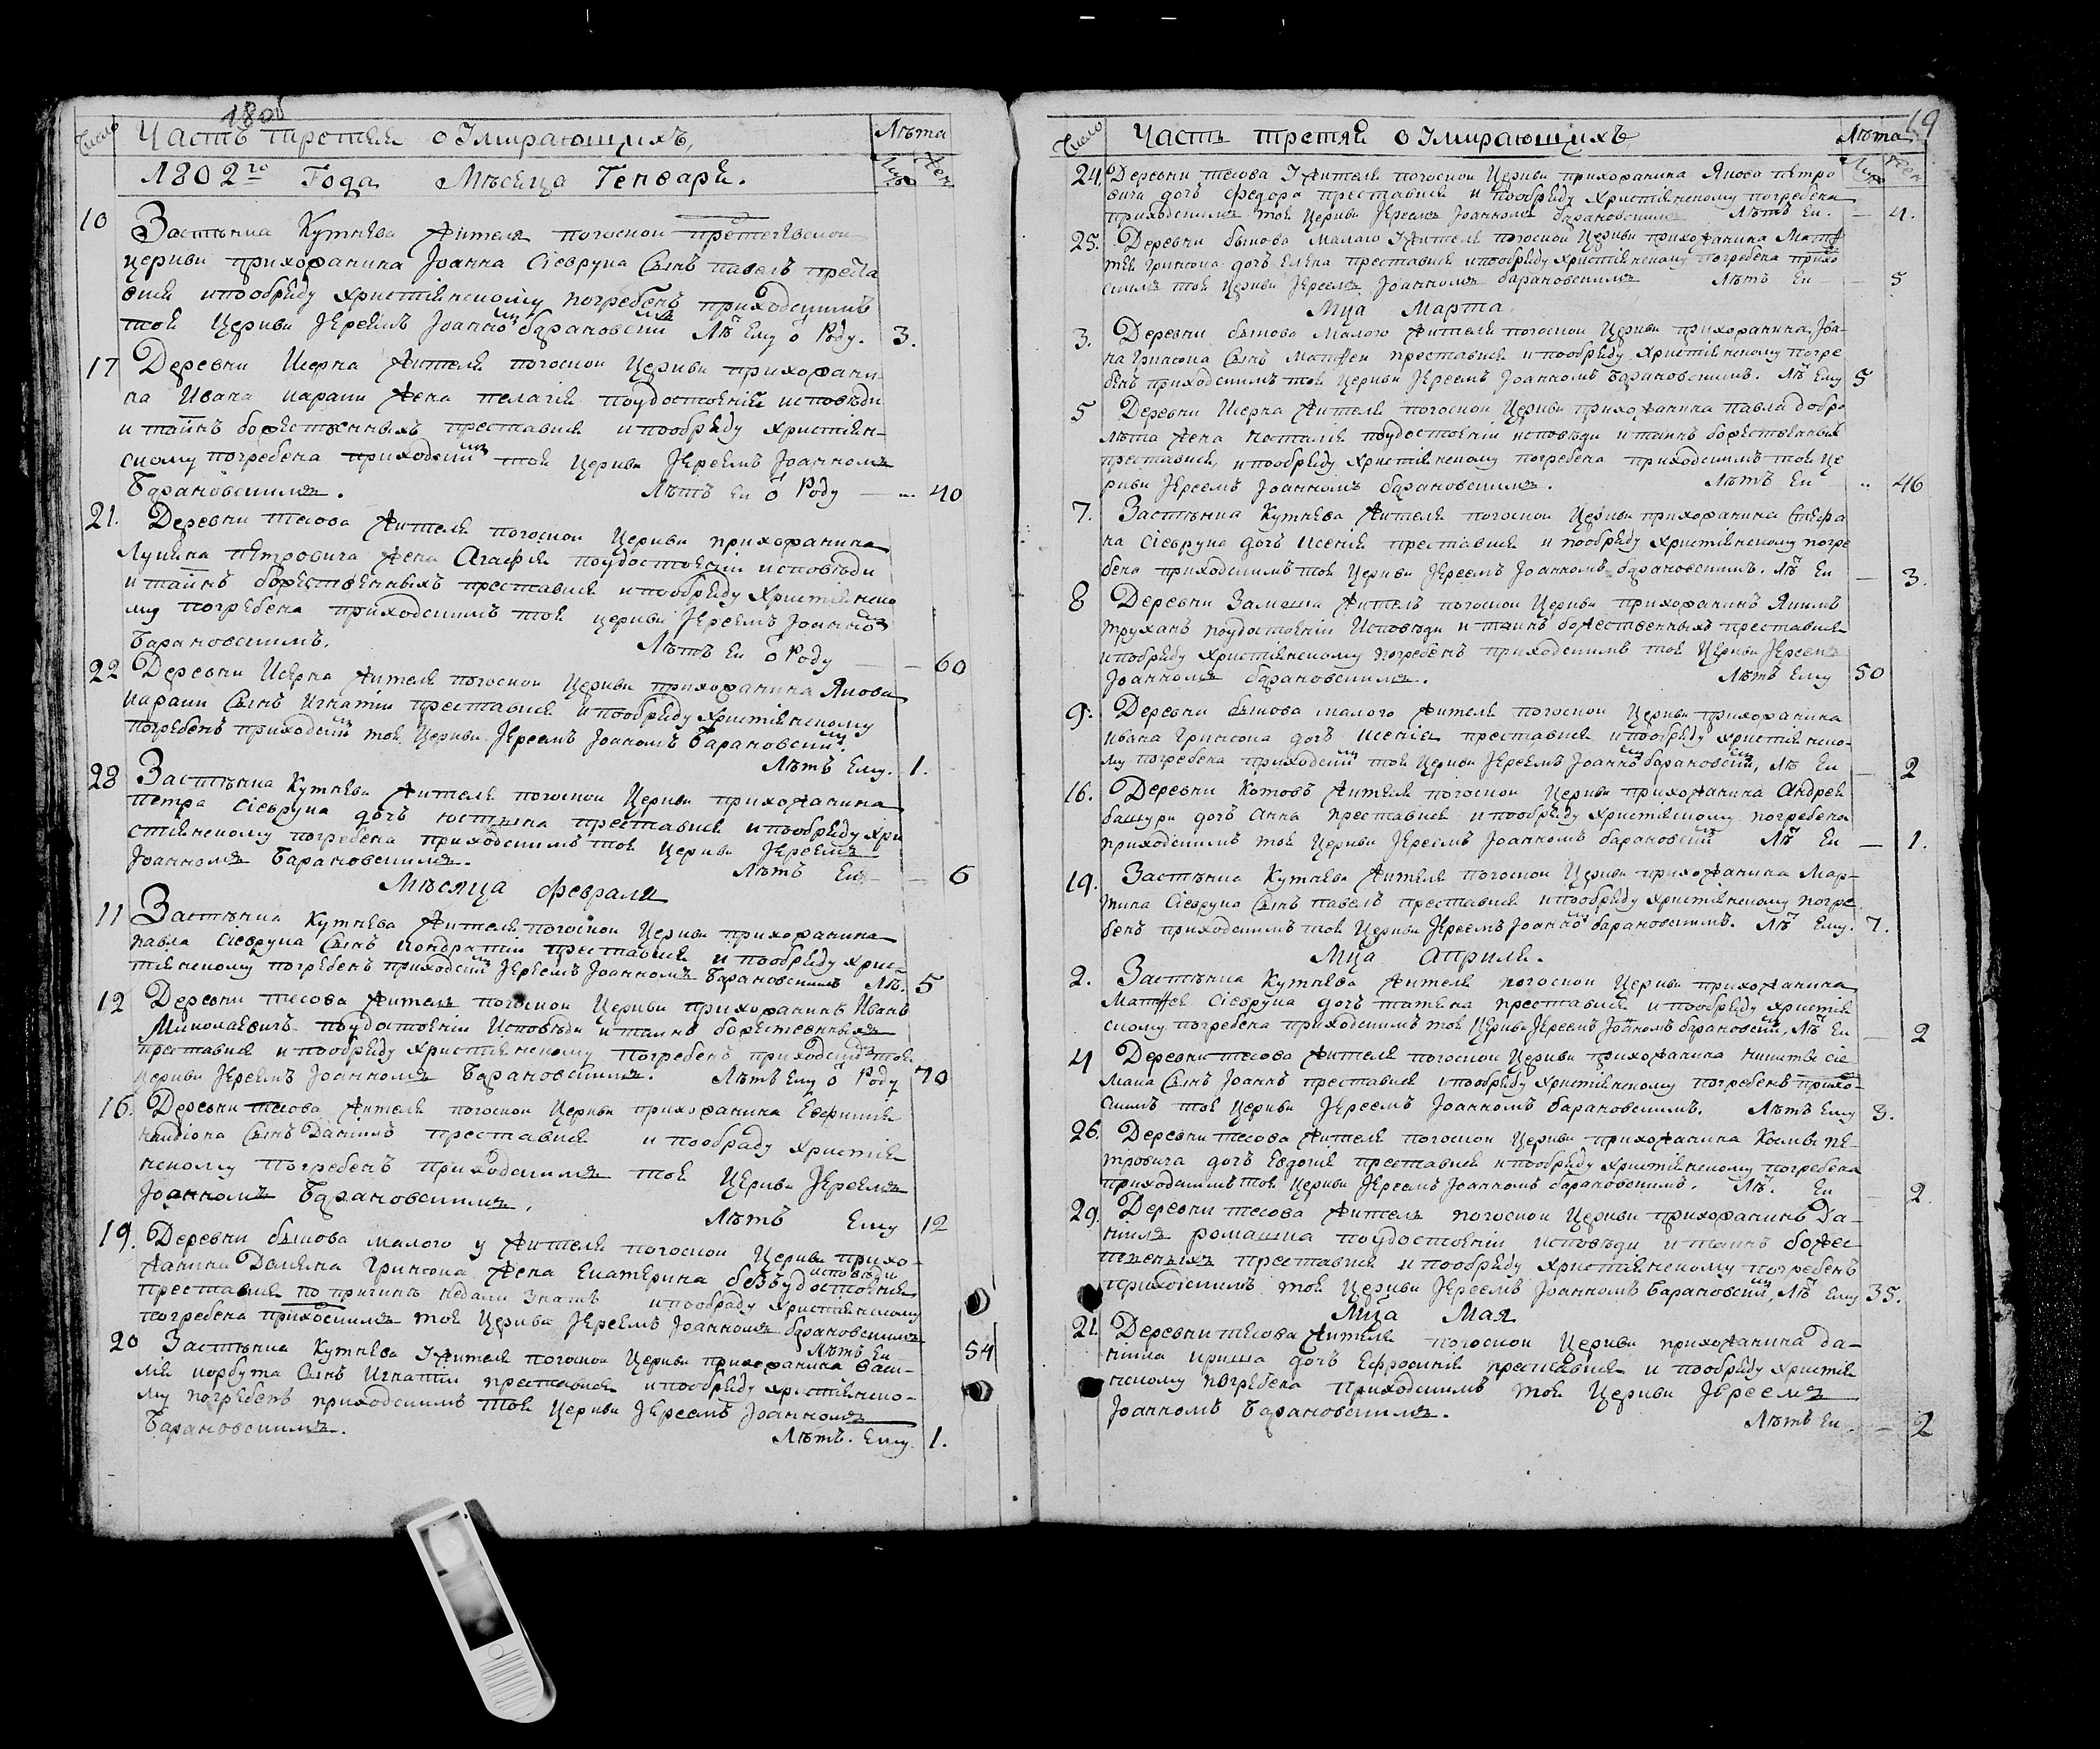 1801
Число Часть третяя о Умирающихъ, Лѣта
1802го Года Мѣсяца Генваря. Муж Жен
10 Застѣнка Кутнева жителя погоской
церкви прихожанина Іоанна Сіеврука Сынъ павелъ преста
вися ипообряду христіянскому погребенъ приходскимъ
тоя Церкви Іереемъ Іоанномъ барановскимъ Лѣ Ему ѿ Роду. 3.
17 Деревни Исерна жителя погоской Церкви прихожани
на Ивана карани жена пелагія поудостояніи исповѣди
и тайнъ божественныхъ преставися ипообряду христіян-
скому погребена приходским тоя Церкви Іереемъ Іоанномъ
Барановскимъ. Лѣтъ Еи ѿ Роду — 40
21. Деревни тесова жителя погоской Церкви прихожанина
Лукяна пѣтровича жена Агафія поудостояніи исповѣди
и тайнъ божественныхъ преставися ипообряду Христіянско
му погребена приходскимъ тоя церкви Іереемъ Іоанном
Барановскимъ. Лѣтъ Еи ѿ Роду — — 60
22 Деревни Исерна жителя погоской Церкви прихожанина Якова
карани Сынъ Игнатіи преставися ипообряду христіянскому
погребенъ приходским тоя Церкви Іереемъ Іоаномъ Барановским.
Лѣтъ Ему. 1.
28 Застѣнка Кутнева жителя погоской Церкви прихожанина
петра Сіеврука дочь юстына преставися ипообряду хри
стіянскому погребена приходскимъ тоя Церкви Іереемъ
Іоанномъ Барановскимъ. Лѣтъ Еи — — 6
Мѣсяца февраля
11 Застѣнка Кутнева жителя погоской Церкви прихожанина
павла Сіеврука Сынъ кондратіи преставися и пообряду хрис-
тіянскому погребенъ приходским Іереемъ Іоанномъ Барановскимъ Лѣ. 5
12 Деревни тесова житель погоской Церкви прихожанинъ Иванъ
Миколаевичъ поудостояніи Исповѣди итаинъ божественныхъ
преставися ипообряду христіянскому погребенъ приходским тоя
церкви Іереемъ Іоанномъ Барановскимъ. Лѣтъ Ему ѿ Роду 70
16. Деревни тесова жителя погоской Церкви прихожанина
Сынъ Даніилъ преставися и пообраду христія
нскому погребенъ приходскимъ тоя Церкви Іереемъ
Іоанномъ Барановскимъ. Лѣтъ Ему 12
19. Деревни быкова малого у жителя погоской Церкви прихо-
жанина Демяна Гринкона жена Екатерина безъудостоянія
исповѣди
преставися по причинѣ недали знать ипообраду христіянскому
погребена приходскимъ тоя Церкви Іереемъ Іоанномъ барановскимъ
Лѣтъ Еи 54
20 Застѣнка Кутнева Ужителя погоской Церкви прихожанина васи-
лія корбута Сынъ Игнатіи преставися ипообряду христіянско-
му погребенъ приходскимъ тоя Церкви Іереемъ Іоанномъ
Барановскимъ. Лѣтъ. Ему. 1.
19
Число Часть третяя о Умирающихъ Лѣта
24. Деревни тесова Ужителя погоской Церкви прихожанина Якова пѣтро
вича дочь федора преставися и пообряду Христіянскому погребена
приходскимъ тоя Церкви Іереемъ Іоанномъ барановскимъ Лѣтъ Еи. — 4.
25. Деревни быкова малаго Ужителя погоской Церкви прихожанина Матф
тея Гринкона дочь Елена преставися ипообряду христіянскому погребена прихо
скимъ тоя Церкви Іереемъ Іоанномъ барановскимъ Лѣтъ Еи — 5
Мца Марта.
3. Деревни быкова малого жителя погоской Церкви прихожанина Ива-
на Гринкона Сынъ Матфеи преставися ипообряду христіянскому погре
бенъ приходскимъ тоя Церкви Іереемъ Іоанномъ Барановскимъ. Лѣ Ему 5
5 Деревни Исерна жителя погоской Церкви прихожанина павла добро
лѣта жена наталія поудостояніи исповѣди итаинъ божественныхъ
преставися, ипообряду христіянскому погребена приходскимъ тоя Це
ркви Іереемъ Іоанномъ барановскимъ. Лѣтъ Еи 46
7. Застѣнка Кутнева жителя погоской Церкви прихожанина Стефа
на Сіеврука дочь Ксенія преставися и пообряду христіянскому погре
бена приходскимъ тоя Церкви Іереемъ Іоанномъ барановскимъ. Лѣ Еи — 3.
8 Деревни Замоша житель погоской Церкви прихожанинъ Якимъ
труханъ поудостояніи Исповѣди и таинъ божественныхъ преставися
ипобряду христіянскому погребенъ приходскимъ тоя Церкви Іереемъ
Іоанномъ барановскимъ. Лѣтъ Ему 50
9. Деревни быкова малого жителя погоской Церкви прихожанина
Ивана Гринкона дочь ксенія преставися ипообряду христіянско-
му погребена приходским тоя Церкви Іереемъ Іоанном барановским, Лѣ Еи — 2
16. Деревни Котовъ жителя погоской Церкви прихожанина Андрея
башури дочь Анна преставися ипообряду христіянскому погребена
приходскимъ тоя Церкви Іереемъ Іоанномъ барановским Лѣ Еи — 1.
19. Застѣнка Кутнева жителя погоской Церкви прихожанина Мар-
тина Сіеврука Сынъ павелъ преставися ипообряду христіянскому погре
бенъ приходскимъ тоя Церкви Іереемъ Іоанном барановскимъ. Лѣ Ему. 7.
Мца Априля.
2. Застѣнка Кутнева жителя погоской Церкви прихожанина
Матфея Сіеврука дочь татяна преставися и пообряду христія
скому погребена приходскимъ тоя Церкви Іереемъ Іоанномъ барановским, Лѣ Еи — 2
4 Деревни тесова жителя погоской Церкви прихожанина никиты сіе
мака Сынъ Іоаннъ преставися ипообряду христіянскому погребенъ прихо-
скимъ тоя Церкви Іереемъ Іоанномъ барановскимъ. Лѣтъ Ему 3.
26. Деревни тесова жителя погоской Церкви прихожанина Космы пе-
тровича дочь Евдокія преставися ипообряду христіянскому погребена
приходскимъ тоя Церкви Іереемъ Іоанномъ барановскимъ. Лѣ. Еи — 2.
29. Деревни тесова житель погоской Церкви прихожанинъ Да-
ніилъ ромашка поудостояніи исповѣди итаинъ божес-
твеныхъ преставися ипообряду христіянскому погребенъ
приходскимъ тоя Церкви Іереемъ Іоанномъ Барановским, Лѣ Ему 35.
Мца Мая
21. Деревни тесова жителя погоской Церкви прихожанина да-
ніила криша дочь Ефросинія преставися и пообряду христія
нскому погребена Приходскимъ тоя Церкви Іереемъ
Іоанномъ Барановскимъ. Лѣтъ Еи — 2